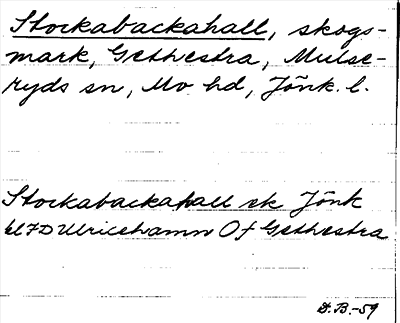 Stockabackahall, skogs-
mark, Gethestra, Mulse-
ryds sn, Mo hd, Jönk. l.
Stockabackahall ek Jönk
7D Ulricehamn Of Gethestra
D. B. -59